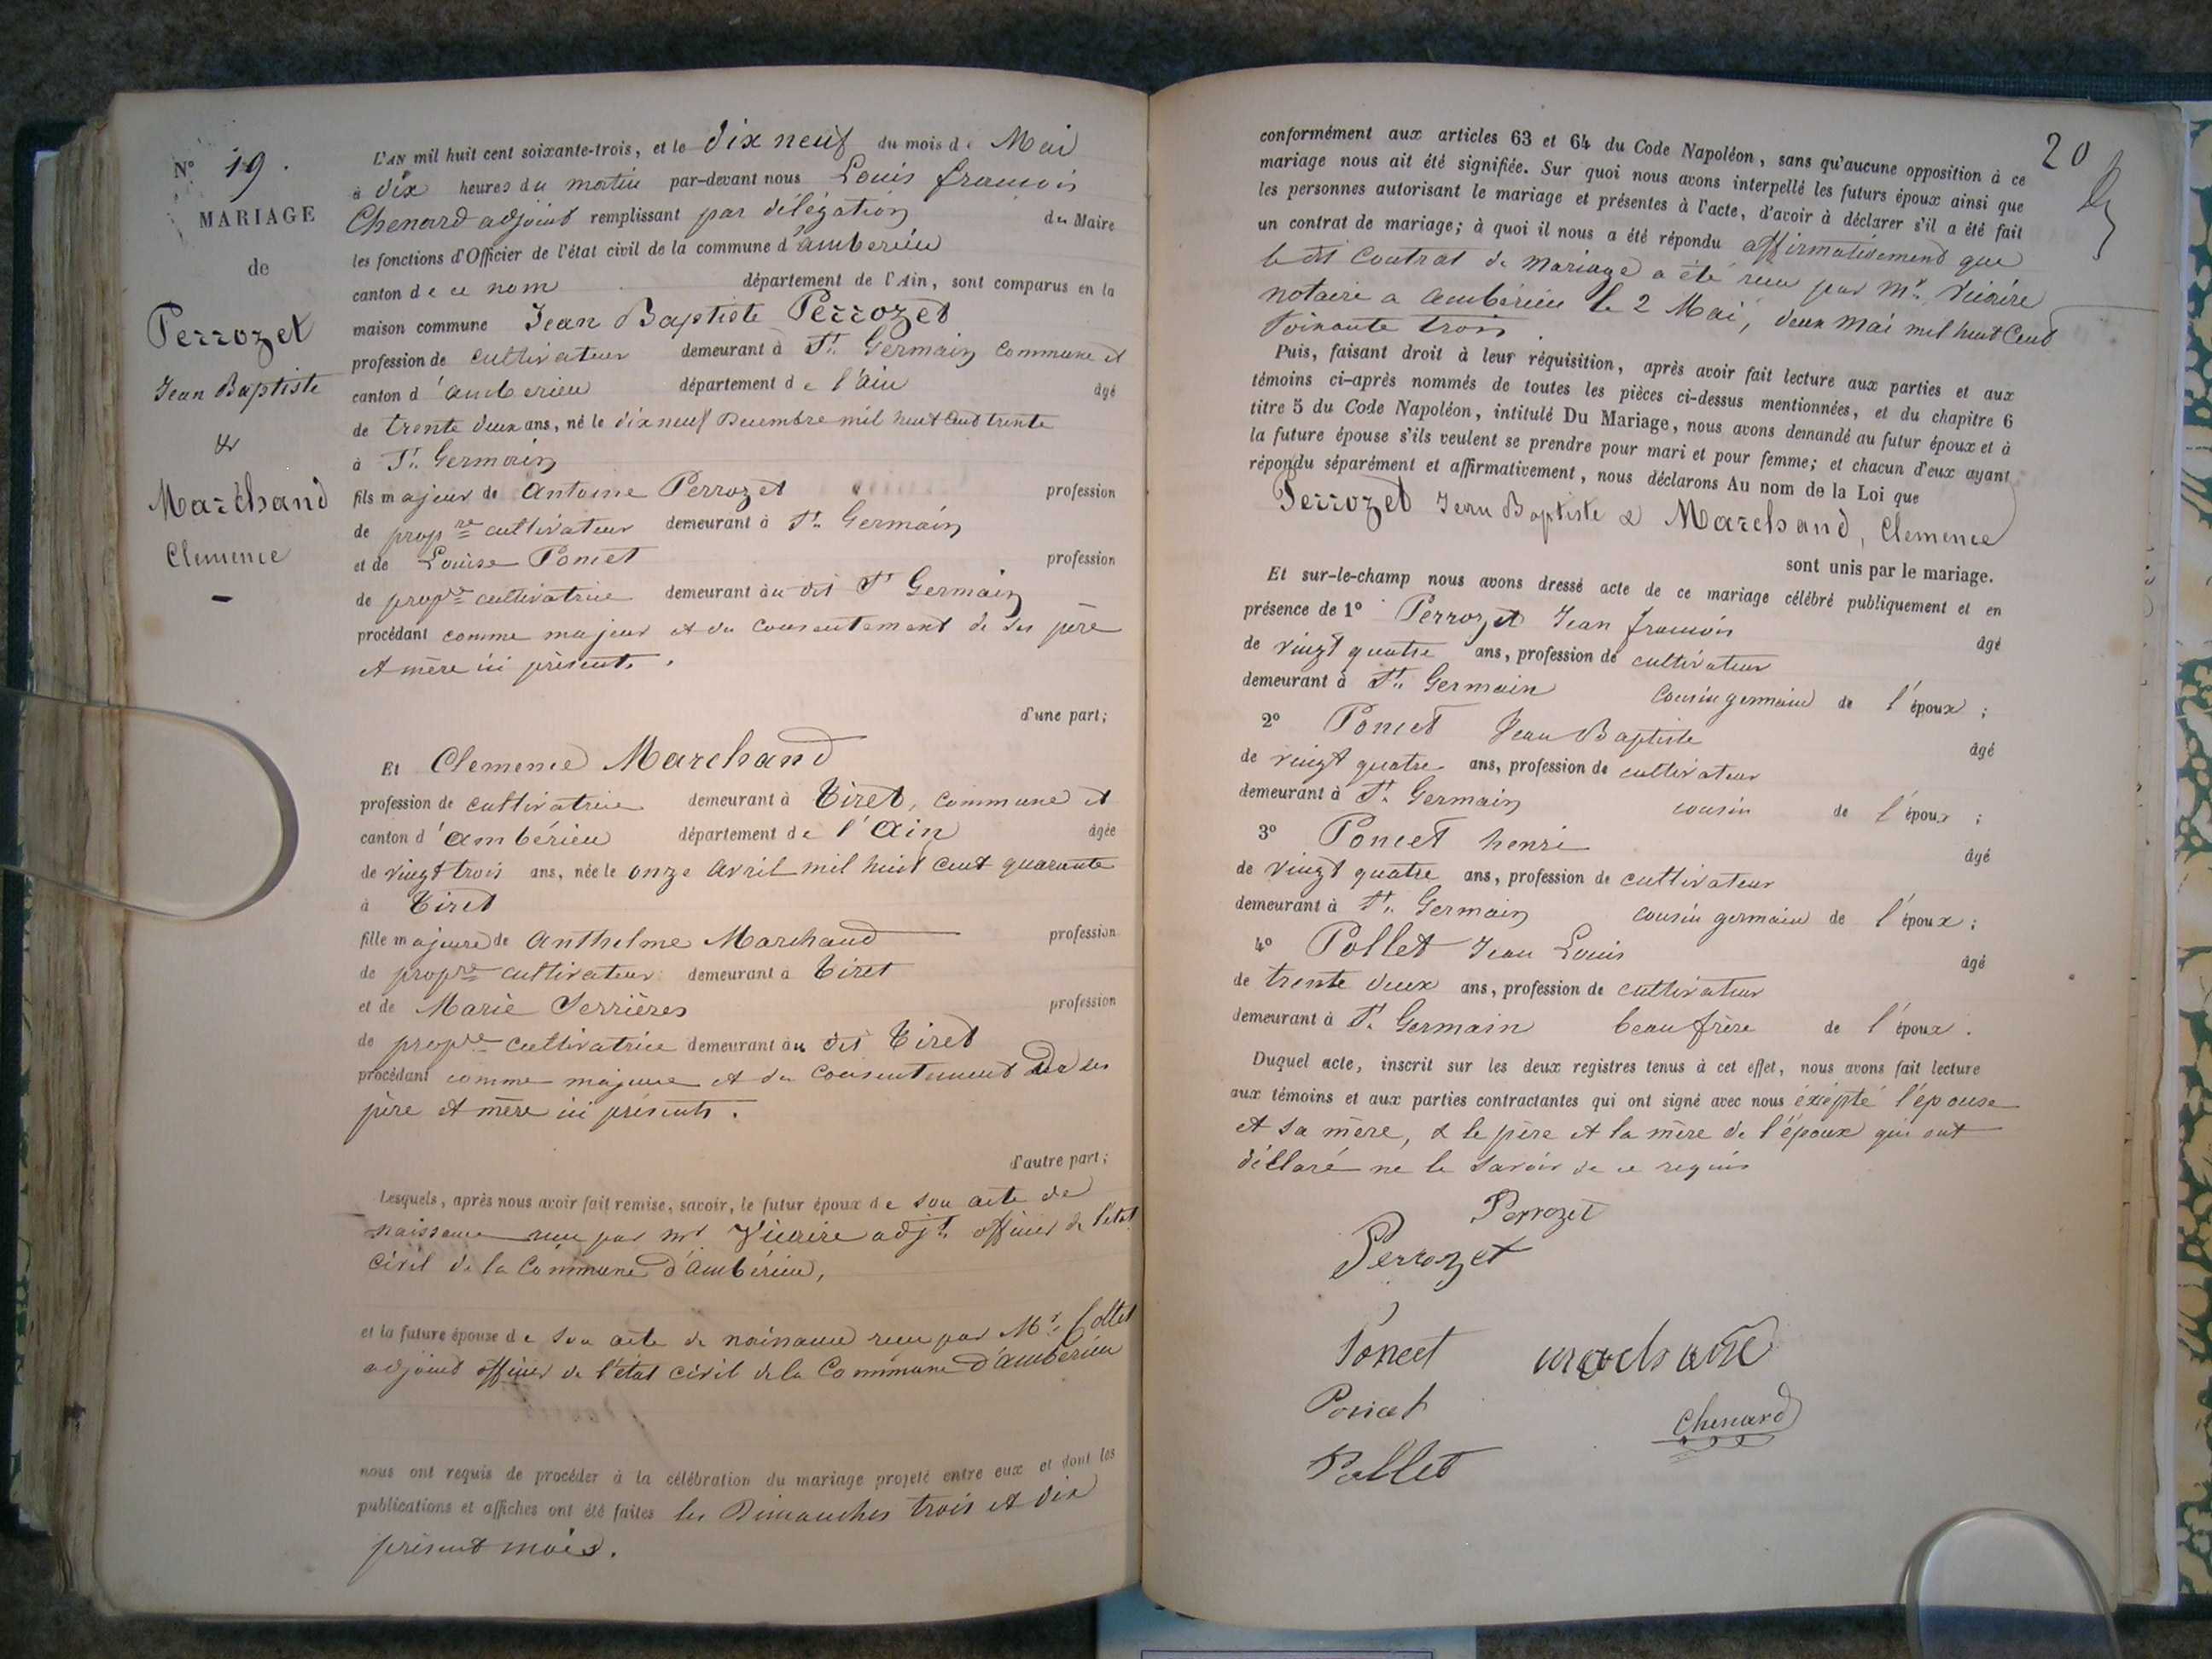 N° 19.
MARIAGE
de
Perrozet
Jean Baptiste
&
Marchand
Clemence
L'AN mil huit cent soixante-trois, et le dix neuf du mois de Mai
à dix heures du matin par-devant nous Louis françois
Chenard adjoint remplissant par délégation du Maire
les fonctions d'Officier de l'état civil de la commune d'amberieu
canton de ce nom département de l'Ain, sont comparus en la
maison commune Jean Baptiste Perrozet
profession de cultivateur demeurant à St. Germain commune et
canton d'amberieu département de l'ain âgé
de trente deux ans, né le dix neuf Decembre mil huit cent trente
à St. Germain
fils majeur de Antoine Perrozet profession
de propre cultivateur demeurant à St. Germain
et de Louise Poncet profession
de propre cultivatrice demeurant au dit St Germain
procédant comme majeur et du consentement de ses père
et mère ici présents.
d'une part;
Et Clemence Marchand
profession de cultivatrice demeurant à Tiret, commune et
canton d'ambérieu département de l'ain âgée
de vingt trois ans, née le onze avril mil huit cent quarante
à Tiret
fille majeure de Anthelme Marchand profession
de propre cultivateur demeurant à Tiret
et de Marie Serrières profession
de propre cultivatrice demeurant au dit Tiret
procédant comme majeure et du consentement de ses
père et mère ici présents.
d'autre part;
Lesquels, après nous avoir fait remise, savoir, le futur époux de son acte de
naissance reçu par mr Vicaire adjt. officier de l'état
civil de la Commune d'ambérieu,
et la future épouse de son acte de naissance reçu par Mr.
adjoint officier de l'état civil de la Commune d'ambérieu
nous ont requis de procéder à la célébration du mariage projeté entre eux et dont les
publications et affiches ont été faites les Dimanches trois et dix
présent mois.
20
conformément aux articles 63 et 64 du Code Napoléon, sans qu'aucune opposition à ce
mariage nous ait été signifiée. Sur quoi nous avons interpellé les futurs époux ainsi que
les personnes autorisant le mariage et présentes à l'acte, d'avoir à déclarer s'il a été fait
un contrat de mariage; à quoi il nous a été répondu affirmativement que
le dit contrat de mariage a été reçu par Mr. Vicaire
notaire a ambérieu le 2 Mai, deux mai mil huit cent
soixante trois.
Puis, faisant droit à leur réquisition, après avoir fait lecture aux parties et aux
témoins ci-après nommés de toutes les pièces ci-dessus mentionnées, et du chapitre 6
titre 5 du Code Napoléon, intitulé Du Mariage, nous avons demandé au futur époux et à
la future épouse s'ils veulent se prendre pour mari et pour femme; et chacun d'eux ayant
répondu séparément et affirmativement, nous déclarons Au nom de la Loi que
Perrozet Jean Baptiste & Marchand, Clemence
sont unis par le mariage.
Et sur-le-champ nous avons dressé acte de ce mariage célébré publiquement et en
présence de 1° Perrozet Jean françois âgé
de vingt quatre ans, profession de cultivateur
demeurant à St. Germain cousin germain de l'époux;
2° Poncet Jean Baptiste âgé
de vingt quatre ans, profession de cultivateur
demeurant à St. Germain cousin de l'époux;
3° Poncet henri âgé
de vingt quatre ans, profession de cultivateur
demeurant à St. Germain cousin germain de l'époux;
4° Pollet Jean Louis âgé
de trente deux ans, profession de cultivateur
demeurant à St. Germain beau frère de l'époux.
Duquel acte, inscrit sur les deux registres tenus à cet effet, nous avons fait lecture
aux témoins et aux parties contractantes qui ont signé avec nous éxépté l'épouse
et sa mère, & le père et la mère de l'époux qui ont
déclaré ne le savoir de ce requis
Perrozet
Perrozet
Poncet marchand
Poncet
Chenard
Pollet